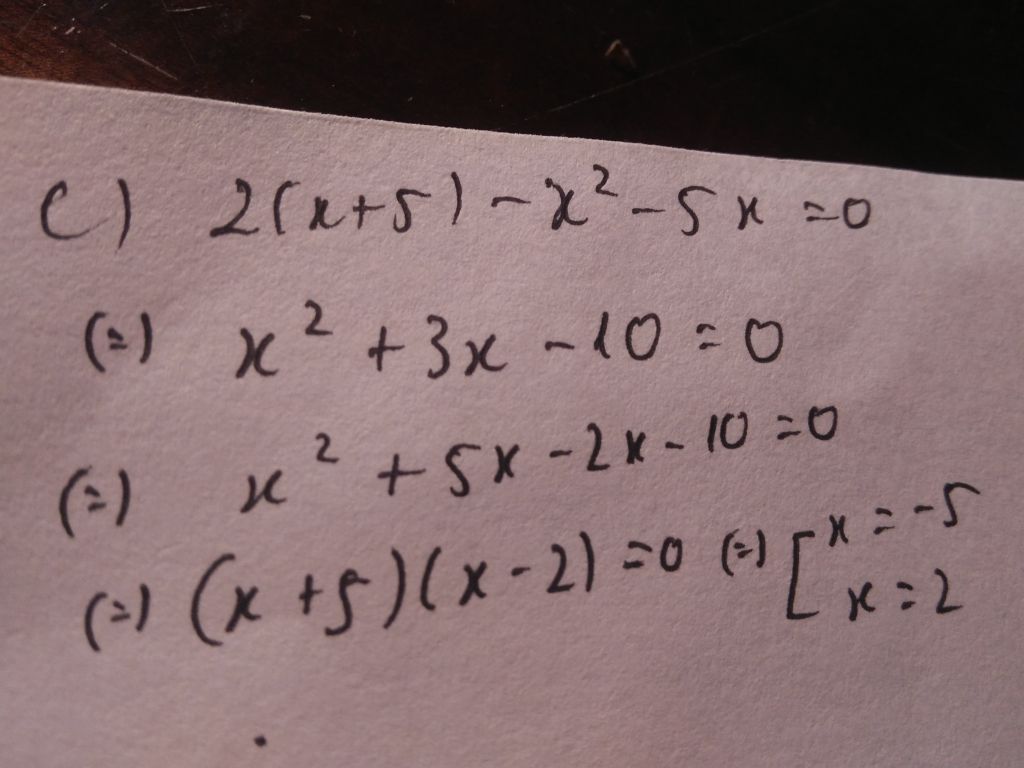 c) 2(x+5) - x² - 5x = 0
(=) x² + 3x - 10 = 0
(=) x² + 5x - 2x - 10 = 0
(=) (x + 5)(x - 2) = 0 (=) [ x = -5
x = 2